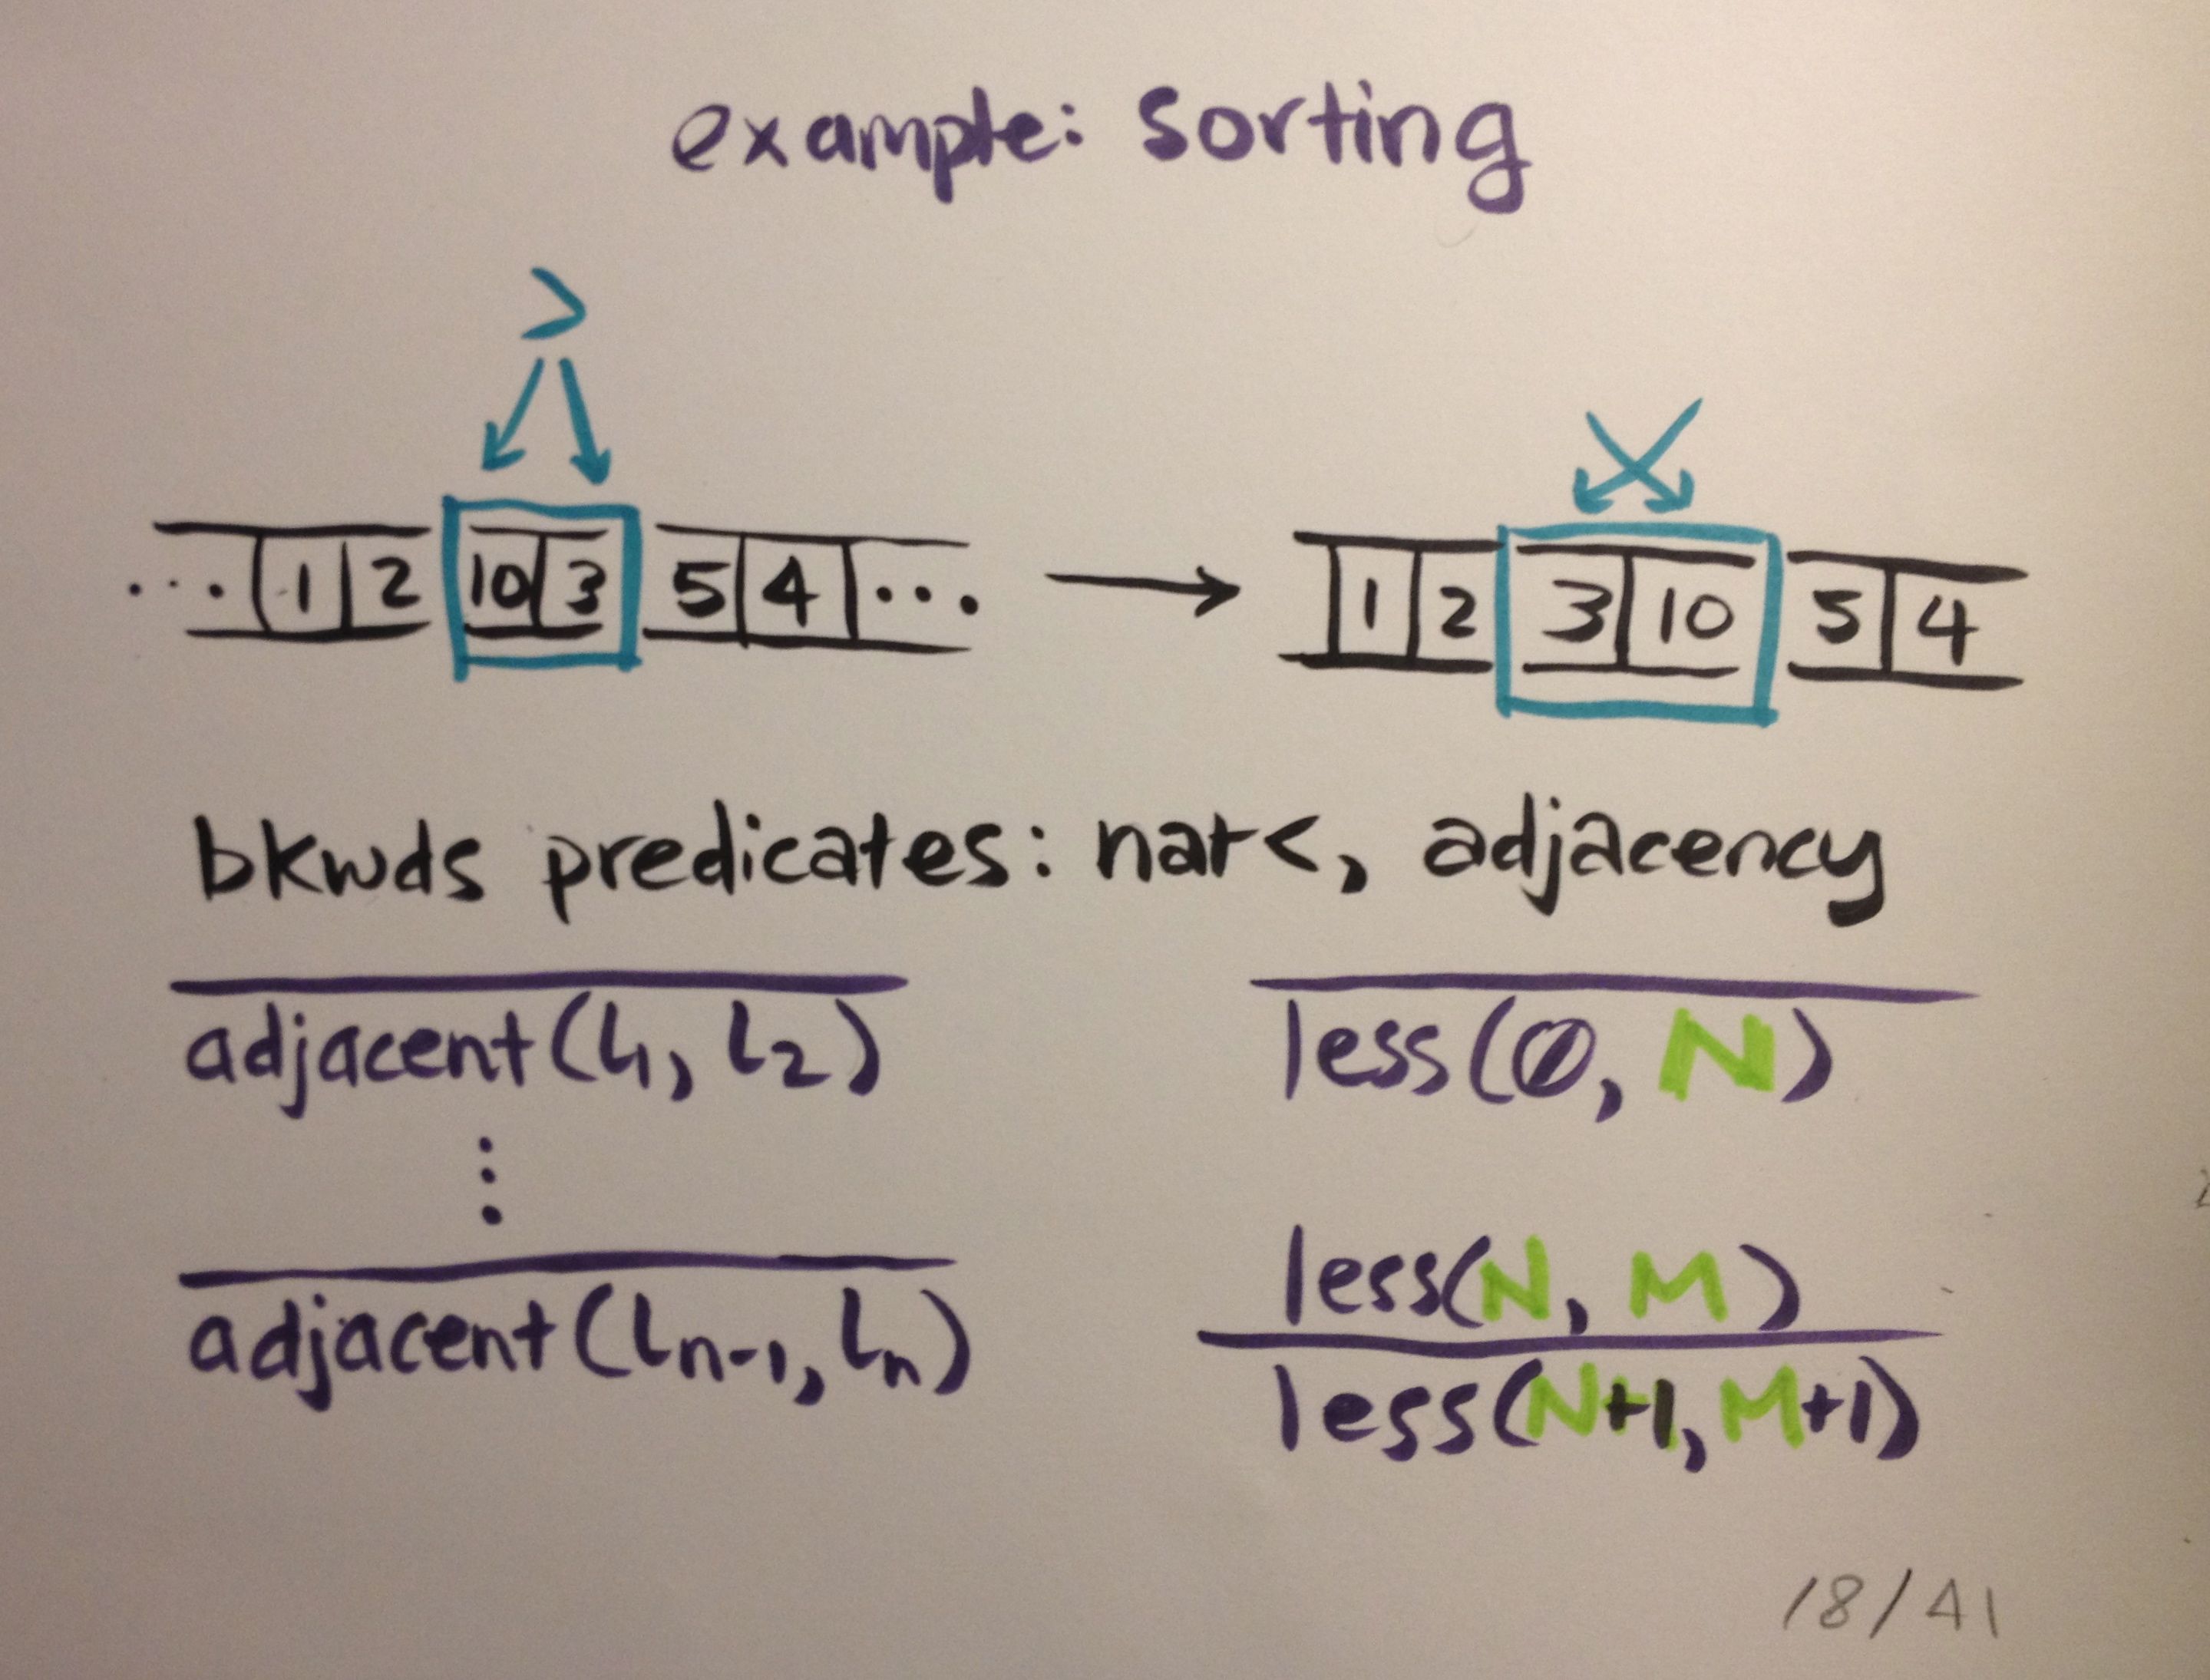 example: sorting
>
... 1 2 10 3 5 4 ... → 1 2 3 10 5 4
bkwds predicates: nat<, adjacency
adjacent(l1, l2)
less(0, N)
⋮
adjacent(ln-1, ln)
less(N, M)
less(N+1, M+1)
18/41